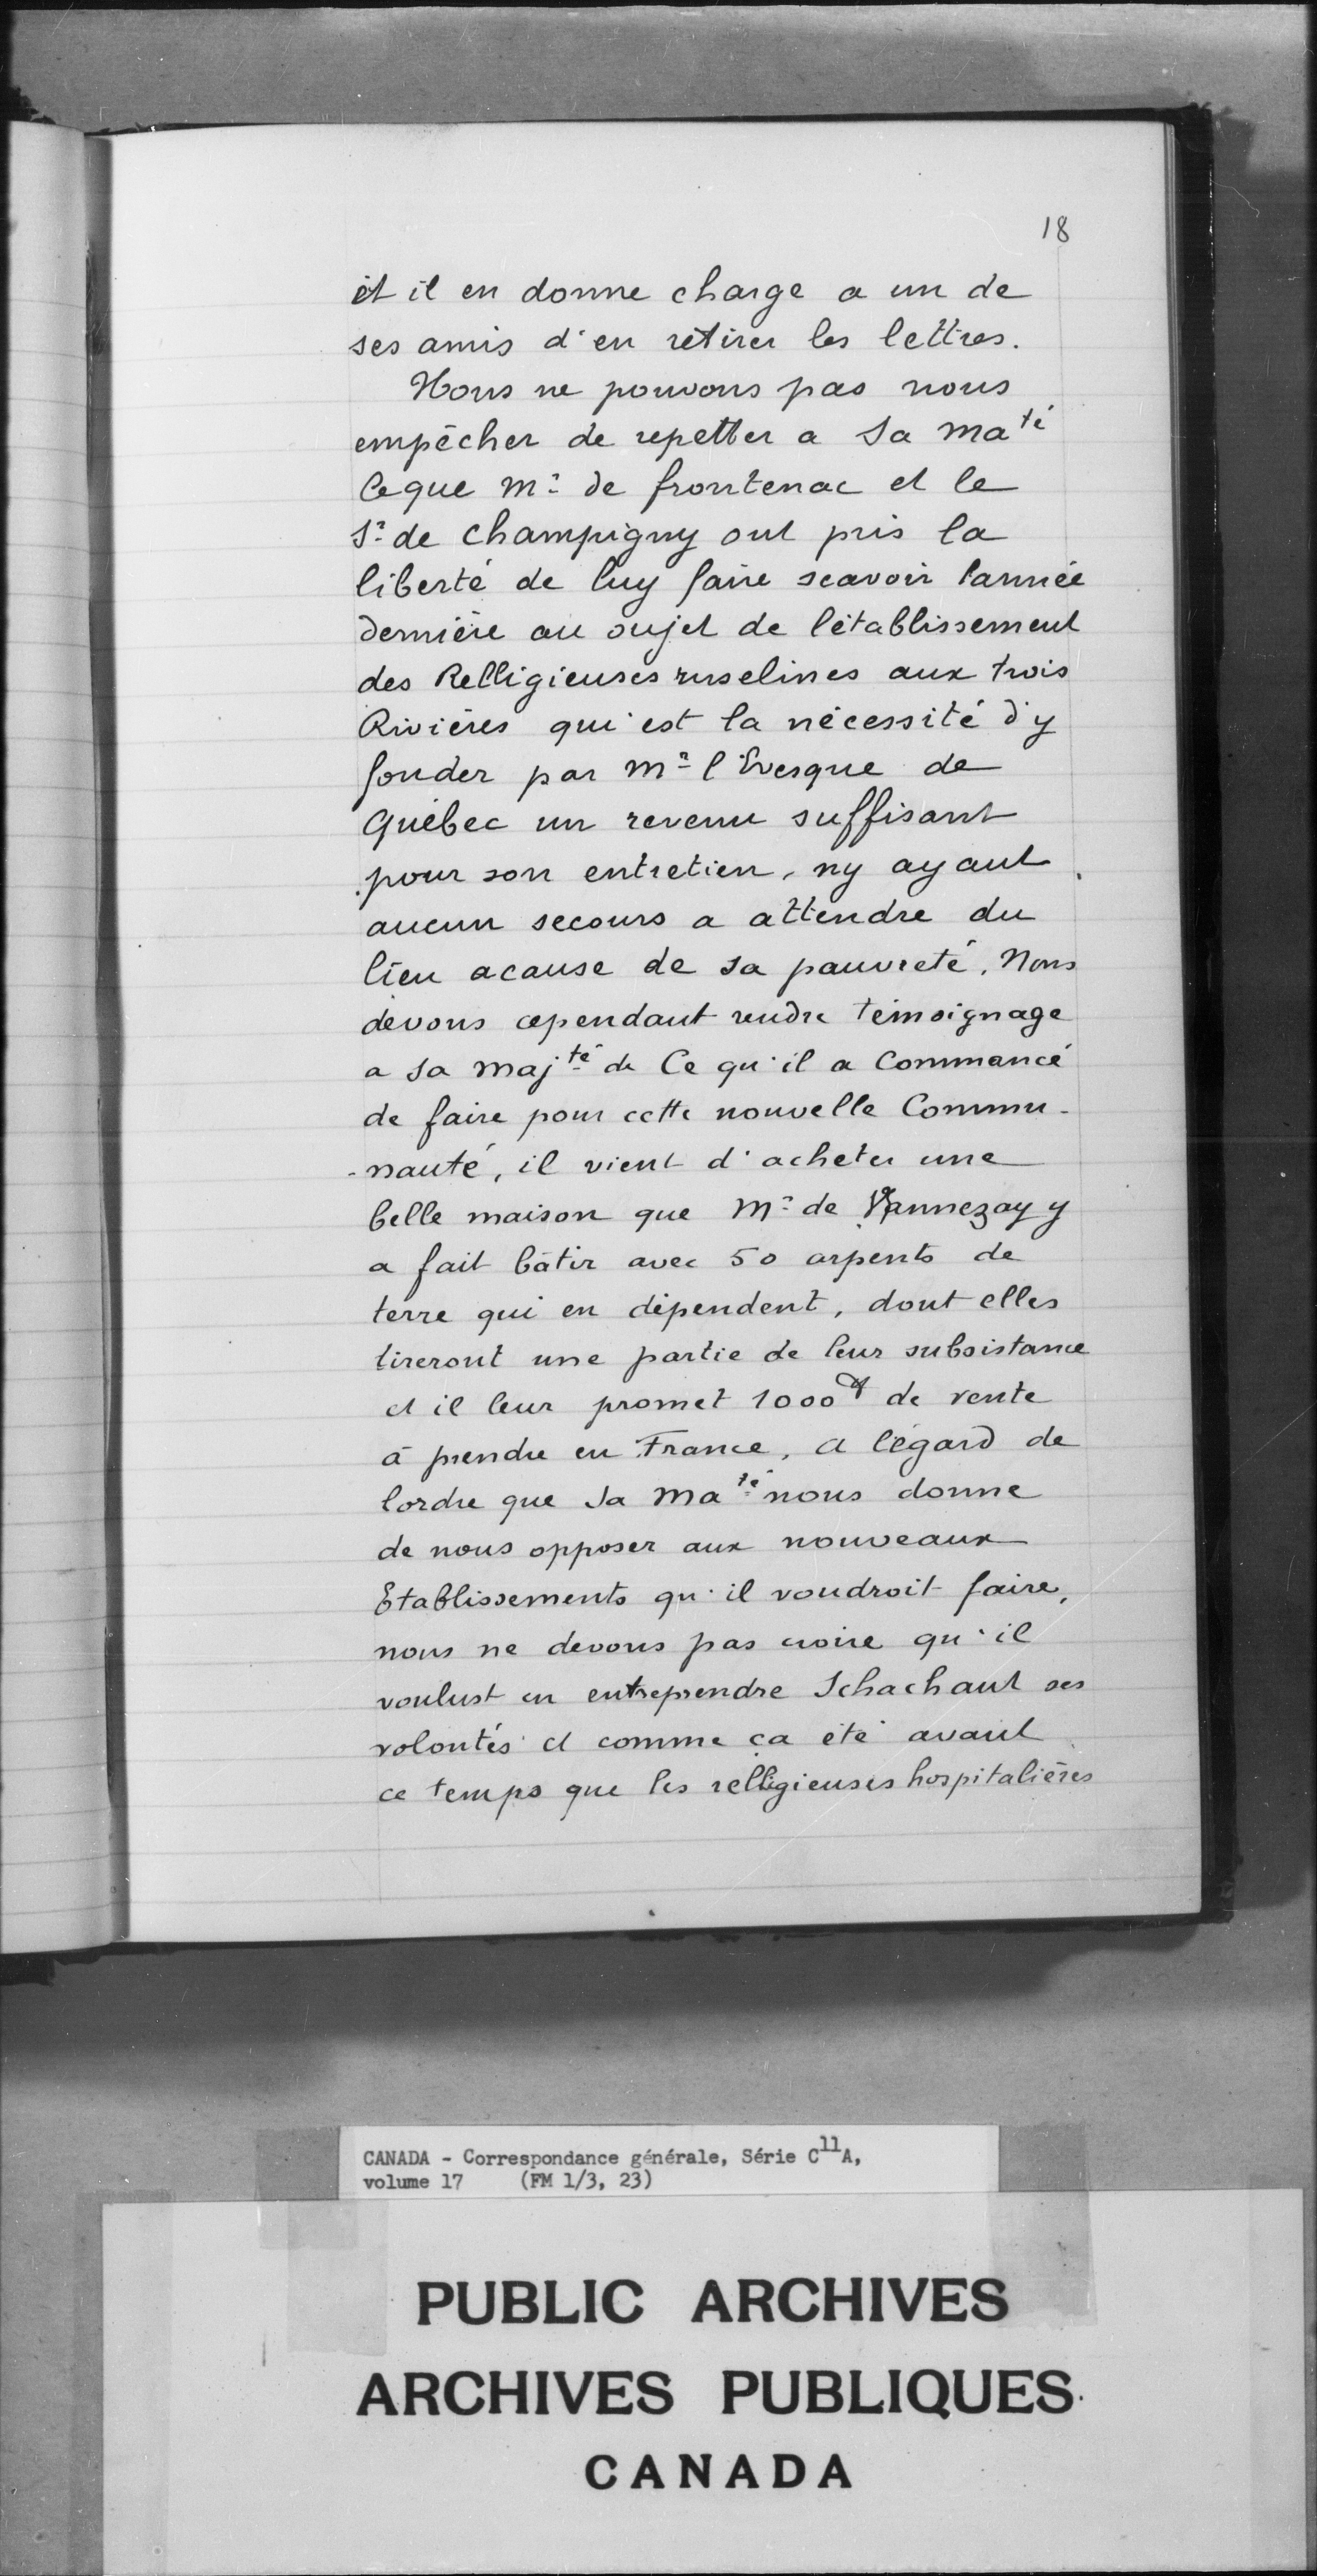 18
et il en donne charge a un de
ses amis d'en retirer les lettres.
Nous ne pouvons pas nous
empêcher de repetter a Sa Ma^té
Ceque M^r de frontenac et le
S^r de Champigny ont pris la
liberté de luy faire scavoir lannée
dernière au sujet de létablissement
des Relligieuses ruselines aux trois
Rivières qui est la nécessité d'y
fonder par M^r l'Evesque de
Québec un revenu suffisant
pour son entretien, ny ayant
aucun secours a attendre du
lieu acause de sa pauvreté. Nous
devons cependant rendre témoignage
a Sa Maj^té de Ce qu'il a Commancé
de faire pour cette nouvelle Commu-
-nauté, il vient d'acheter une
belle maison que M^r de Vannezay y
a fait bâtir avec 50 arpents de
terre qui en dépendent, dont elles
tireront une partie de leur subsistance
et il leur promet 1000^# de rente
à prendre en France, a légard de
lordre que Sa Ma^té nous donne
de nous opposer aux nouveaux
Etablissements qu'il voudroit faire,
nous ne devons pas croire qu'il
voulust en entreprendre Schachant ses
volontés et comme ça été avant
ce temps que les relligieuses hospitalières
CANADA - Correspondance générale, Série C^11A,
volume 17 (FM 1/3, 23)
PUBLIC ARCHIVES
ARCHIVES PUBLIQUES
CANADA